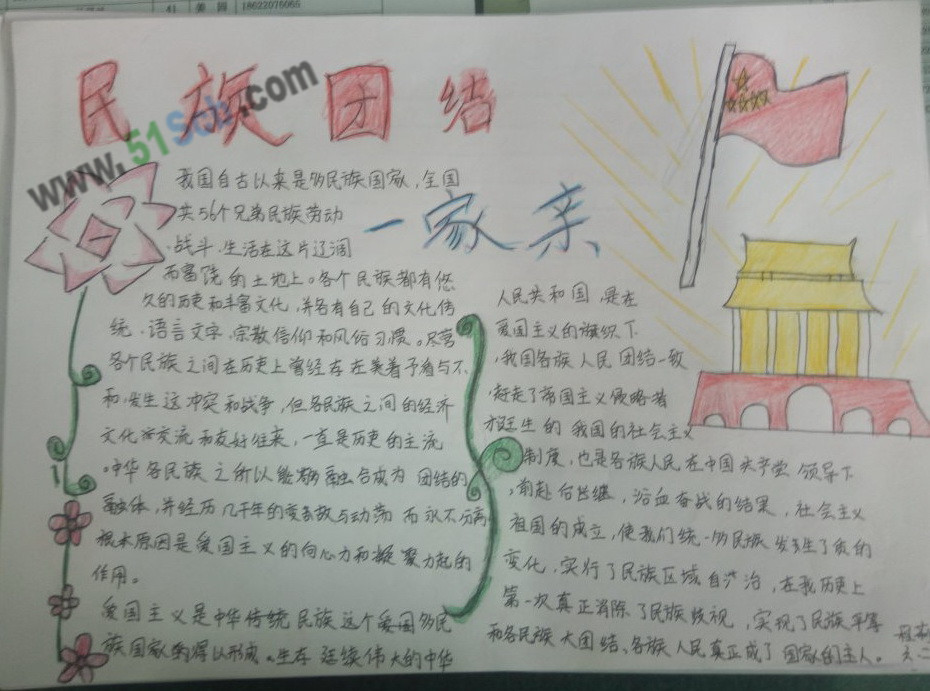 41 美园 18622076065
民族团结
www.51Sob.com
一家亲
我国自古以来是多民族国家,全国
共56个兄弟民族劳动
战斗.生活在这片辽阔
而富饶的土地上。各个民族都有悠
久的历史和丰富文化,并各有自己的文化传
统、语言文字、宗教信仰和风俗习惯。尽管
各个民族之间在历史上曾经存在着矛盾与不
和,发生过冲突和战争,但各民族之间的经济
文化交流和友好往来,一直是历史的主流
。中华各民族之所以能够融合成为团结的
融体,并经历几千年的变故与动荡而永不分离
根本原因是爱国主义的向心力和凝聚力起的
作用。
爱国主义是中华传统民族这个爱国多民
族国家的得以形成。生存延续伟大的中华
人民共和国,是在
爱国主义的旗帜下
,我国各族人民团结一致
,赶走了帝国主义侵略者
才诞生的我国的社会主义
制度,也是各族人民在中国共产党领导下
,前赴后继,浴血奋战的结果,社会主义
祖国的成立,使我们统一多民族发生了质的
变化,实行了民族区域自治,在我历史上
第一次真正消除了民族歧视,实现了民族平等
和各民族大团结、各族人民真正成了国家的主人。
六二